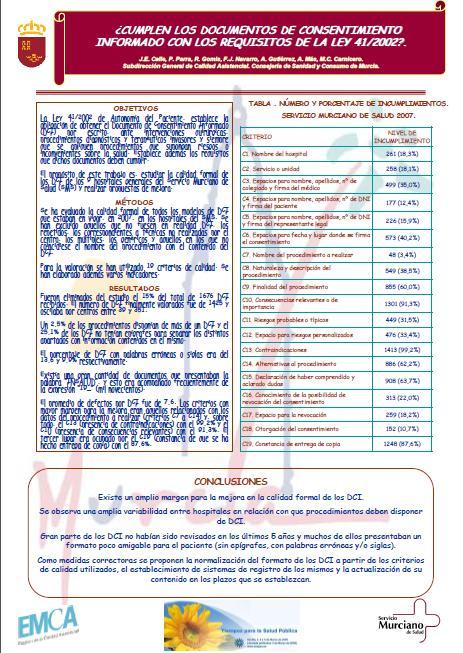 ¿CUMPLEN LOS DOCUMENTOS DE CONSENTIMIENTO
INFORMADO CON LOS REQUISITOS DE LA LEY 41/2002?.
J.E. Calle, P. Parra, R. Gomis, F.J. Navarro, A. Gutiérrez, A. Más, M.C. Carnicero.
Subdirección General de Calidad Asistencial. Consejería de Sanidad y Consumo de Murcia.
OBJETIVOS
La Ley 41/2002 de Autonomía del Paciente, establece la
obligación de obtener el Documento de Consentimiento Informado
(DCI) por escrito ante intervenciones quirúrgicas,
procedimientos diagnósticos y terapéuticos invasores y siempre
que se apliquen procedimientos que supongan riesgos o
inconvenientes sobre la salud. Establece además los requisitos
que dichos documentos deben cumplir.
El propósito de este trabajo es: estudiar la calidad formal de
los DCI de los 9 hospitales generales del Servicio Murciano de
Salud (SMS) y realizar propuestas de mejora.
MÉTODOS
Se ha evaluado la calidad formal de todos los modelos de DCI
que estaban en vigor en 2007, en los hospitales del SMS. Se
han excluido aquellos que no fuesen en realidad DCI, los
repetidos, los correspondientes a técnicas no realizadas por el
centro, los múltiples, los genéricos y aquellos en los que no
coincidiese el nombre del procedimiento con el contenido del
DCI.
Para la valoración se han utilizado 19 criterios de calidad. Se
han elaborado además varios indicadores.
RESULTADOS
Fueron eliminados del estudio el 15% del total de 1676 DCI
recibidos. El número de DCI finalmente valorados fue de 1425 y
oscilaba por centros entre 39 y 351.
Un 2,5% de los procedimientos disponían de más de un DCI y el
25,1% de los DCI no tenían epígrafes para separar los distintos
apartados con información contenidos en el mismo.
El porcentaje de DCI con palabras erróneas o siglas era del
13,6 y 9,9% respectivamente.
Existía una gran cantidad de documentos que presentaban la
palabra "INSALUD" y esto era acompañado frecuentemente de
la expresión "19__" (mil novecientos).
El promedio de defectos por DCI fue de 7,6. Los criterios con
mayor margen para la mejora eran aquellos relacionados con los
datos del procedimiento a realizar (criterios C7 a C14) y, sobre
todo, el C13 (presencia de contraindicaciones) con el 99,2% y el
C10 (presencia de consecuencias relevantes) con el 91,3%. El
tercer lugar era ocupado por el C19 (constancia de que se ha
hecho entrega de copia) con el 87,6%.
TABLA . NÚMERO Y PORCENTAJE DE INCUMPLIMIENTOS.
SERVICIO MURCIANO DE SALUD 2007.
CRITERIO NIVEL DE INCUMPLIMIENTO
C1. Nombre del hospital 261 (18,3%)
C2. Servicio o unidad 258 (18,1%)
C3. Espacios para nombre, apellidos, nº de
colegiado y firma del médico 499 (35,0%)
C4. Espacios para nombre, apellidos, nº de DNI
y firma del paciente 177 (12,4%)
C5. Espacios para nombre, apellidos, nº de DNI
y firma del representante legal 226 (15,9%)
C6. Espacios para fecha y lugar donde se firma
el consentimiento 573 (40,2%)
C7. Nombre del procedimiento a realizar 48 (3,4%)
C8. Naturaleza y descripción del
procedimiento 549 (38,5%)
C9. Finalidad del procedimiento 855 (60,0%)
C10. Consecuencias relevantes o de
importancia 1301 (91,3%)
C11. Riesgos probables o típicos 449 (31,5%)
C12. Espacio para riesgos personalizados 476 (33,4%)
C13. Contraindicaciones 1413 (99,2%)
C14. Alternativas al procedimiento 886 (62,2%)
C15. Declaración de haber comprendido y
aclarado dudas 908 (63,7%)
C16. Conocimiento de la posibilidad de
revocación del consentimiento 313 (22,0%)
C17. Espacio para la revocación 259 (18,2%)
C18. Otorgación del consentimiento 152 (10,7%)
C19. Constancia de entrega de copia 1248 (87,6%)
CONCLUSIONES
Existe un amplio margen para la mejora en la calidad formal de los DCI.
Se observa una amplia variabilidad entre hospitales en relación con que procedimientos deben disponer
de DCI.
Gran parte de los DCI no habían sido revisados en los últimos 5 años y muchos de ellos presentaban un
formato poco amigable para el paciente (sin epígrafes, con palabras erróneas y/o siglas).
Como medidas correctoras se proponen la normalización del formato de los DCI a partir de los criterios
de calidad utilizados, el establecimiento de sistemas de registro de los mismos y la actualización de su
contenido en los plazos que se establezcan.
EMCA
Tiempos para la Salud Pública
Servicio
Murciano
de Salud
Murcia